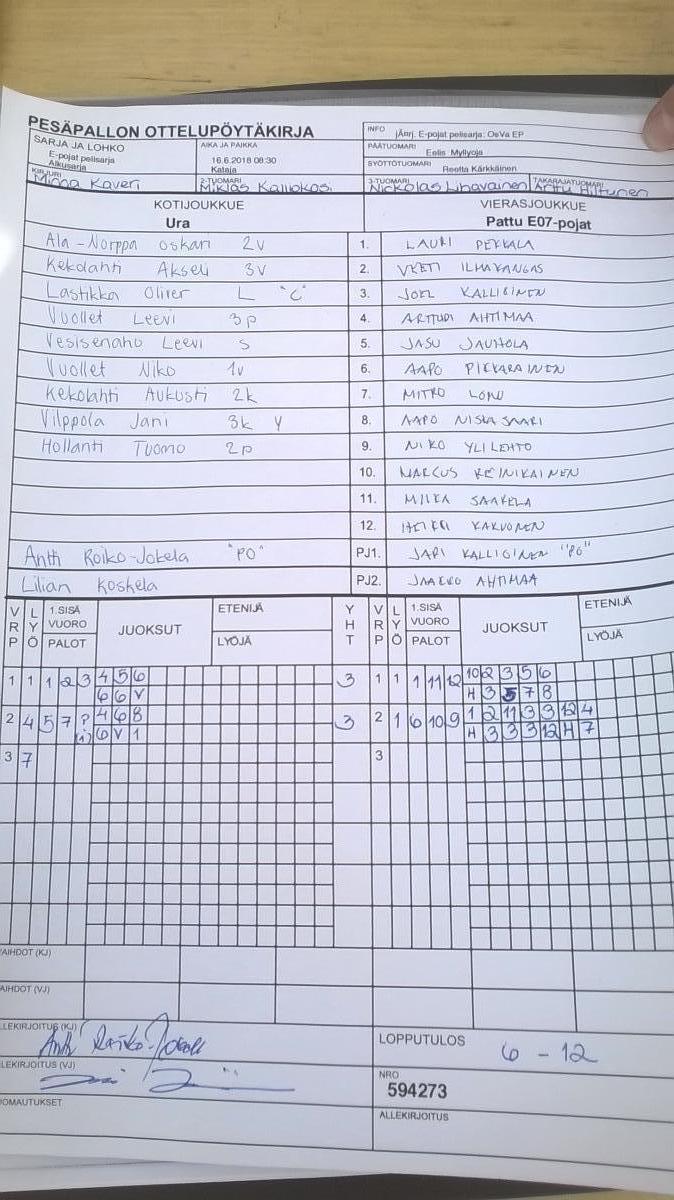 PESÄPALLON OTTELUPÖYTÄKIRJA
INFO jÄnrj. E-pojat pelisarja: OeVa EP
SARJA JA LOHKO E-pojat pelisarja Alkusarja
AIKA JA PAIKKA 16.6.2018 08:30 Kataja
PÄÄTUOMARI Eelis Myllyoja
SYÖTTÖTUOMARI Reetta Kärkkäinen
KIRJURI Minna Kaveri
2-TUOMARI Miklas Kalliokos
3-TUOMARI Nickolas Lihavainen
TAKARAJATUOMARI Arttu Hiltunen
KOTIJOUKKUE VIERASJOUKKUE
Ura Pattu E07-pojat
Ala-Norppa Oskari 2v 1. LAURI PEKKALA
Kekolahti Akseli 3v 2. VEETI ILMAKANGAS
Lastikka Oliver L "C" 3. JOEL KALLIGINEN
Vuollet Leevi 3p 4. ARTTURI AHTIMAA
Vesisenaho Leevi S 5. JASU JAUHOLA
Vuollet Niko 1v 6. AAPO PIEKARAINEN
Kekolahti Aukusti 2k 7. MITRO LONU
Vilppola Jani 3k Y 8. AAPO NISKASAARI
Hollanti Tuomo 2p 9. NIKO YLILEHTO
10. MARCUS REINIKAINEN
11. MIIKA SAARELA
12. KARVONEN
Antti Roiko-Jokela "PO" PJ1. JARI KALLIGINEN "PO"
Lilian Koskela PJ2. JAAKKO AHTIMAA
VRP LYÖ 1.SISÄ VUORO PALOT JUOKSUT ETENIJÄ LYÖJÄ YHT VRP LYÖ 1.SISÄ VUORO PALOT JUOKSUT ETENIJÄ LYÖJÄ
1 1 1 2 3 4 5 6 3 1 1 1 11 12 10 2 3 5 6
6 6 V H 3 5 7 8
2 4 5 7 ? 4 6 8 3 2 1 6 10 9 1 2 11 3 3 12 4
6 V 1 H 3 3 3 12 H 7
3 7 3
AIHDOT (KJ)
AIHDOT (VJ)
LLEKIRJOITUS (KJ) Antti Roiko-Jokela
LOPPUTULOS 6 - 12
LLEKIRJOITUS (VJ)
NRO 594273
OMAUTUKSET
ALLEKIRJOITUS